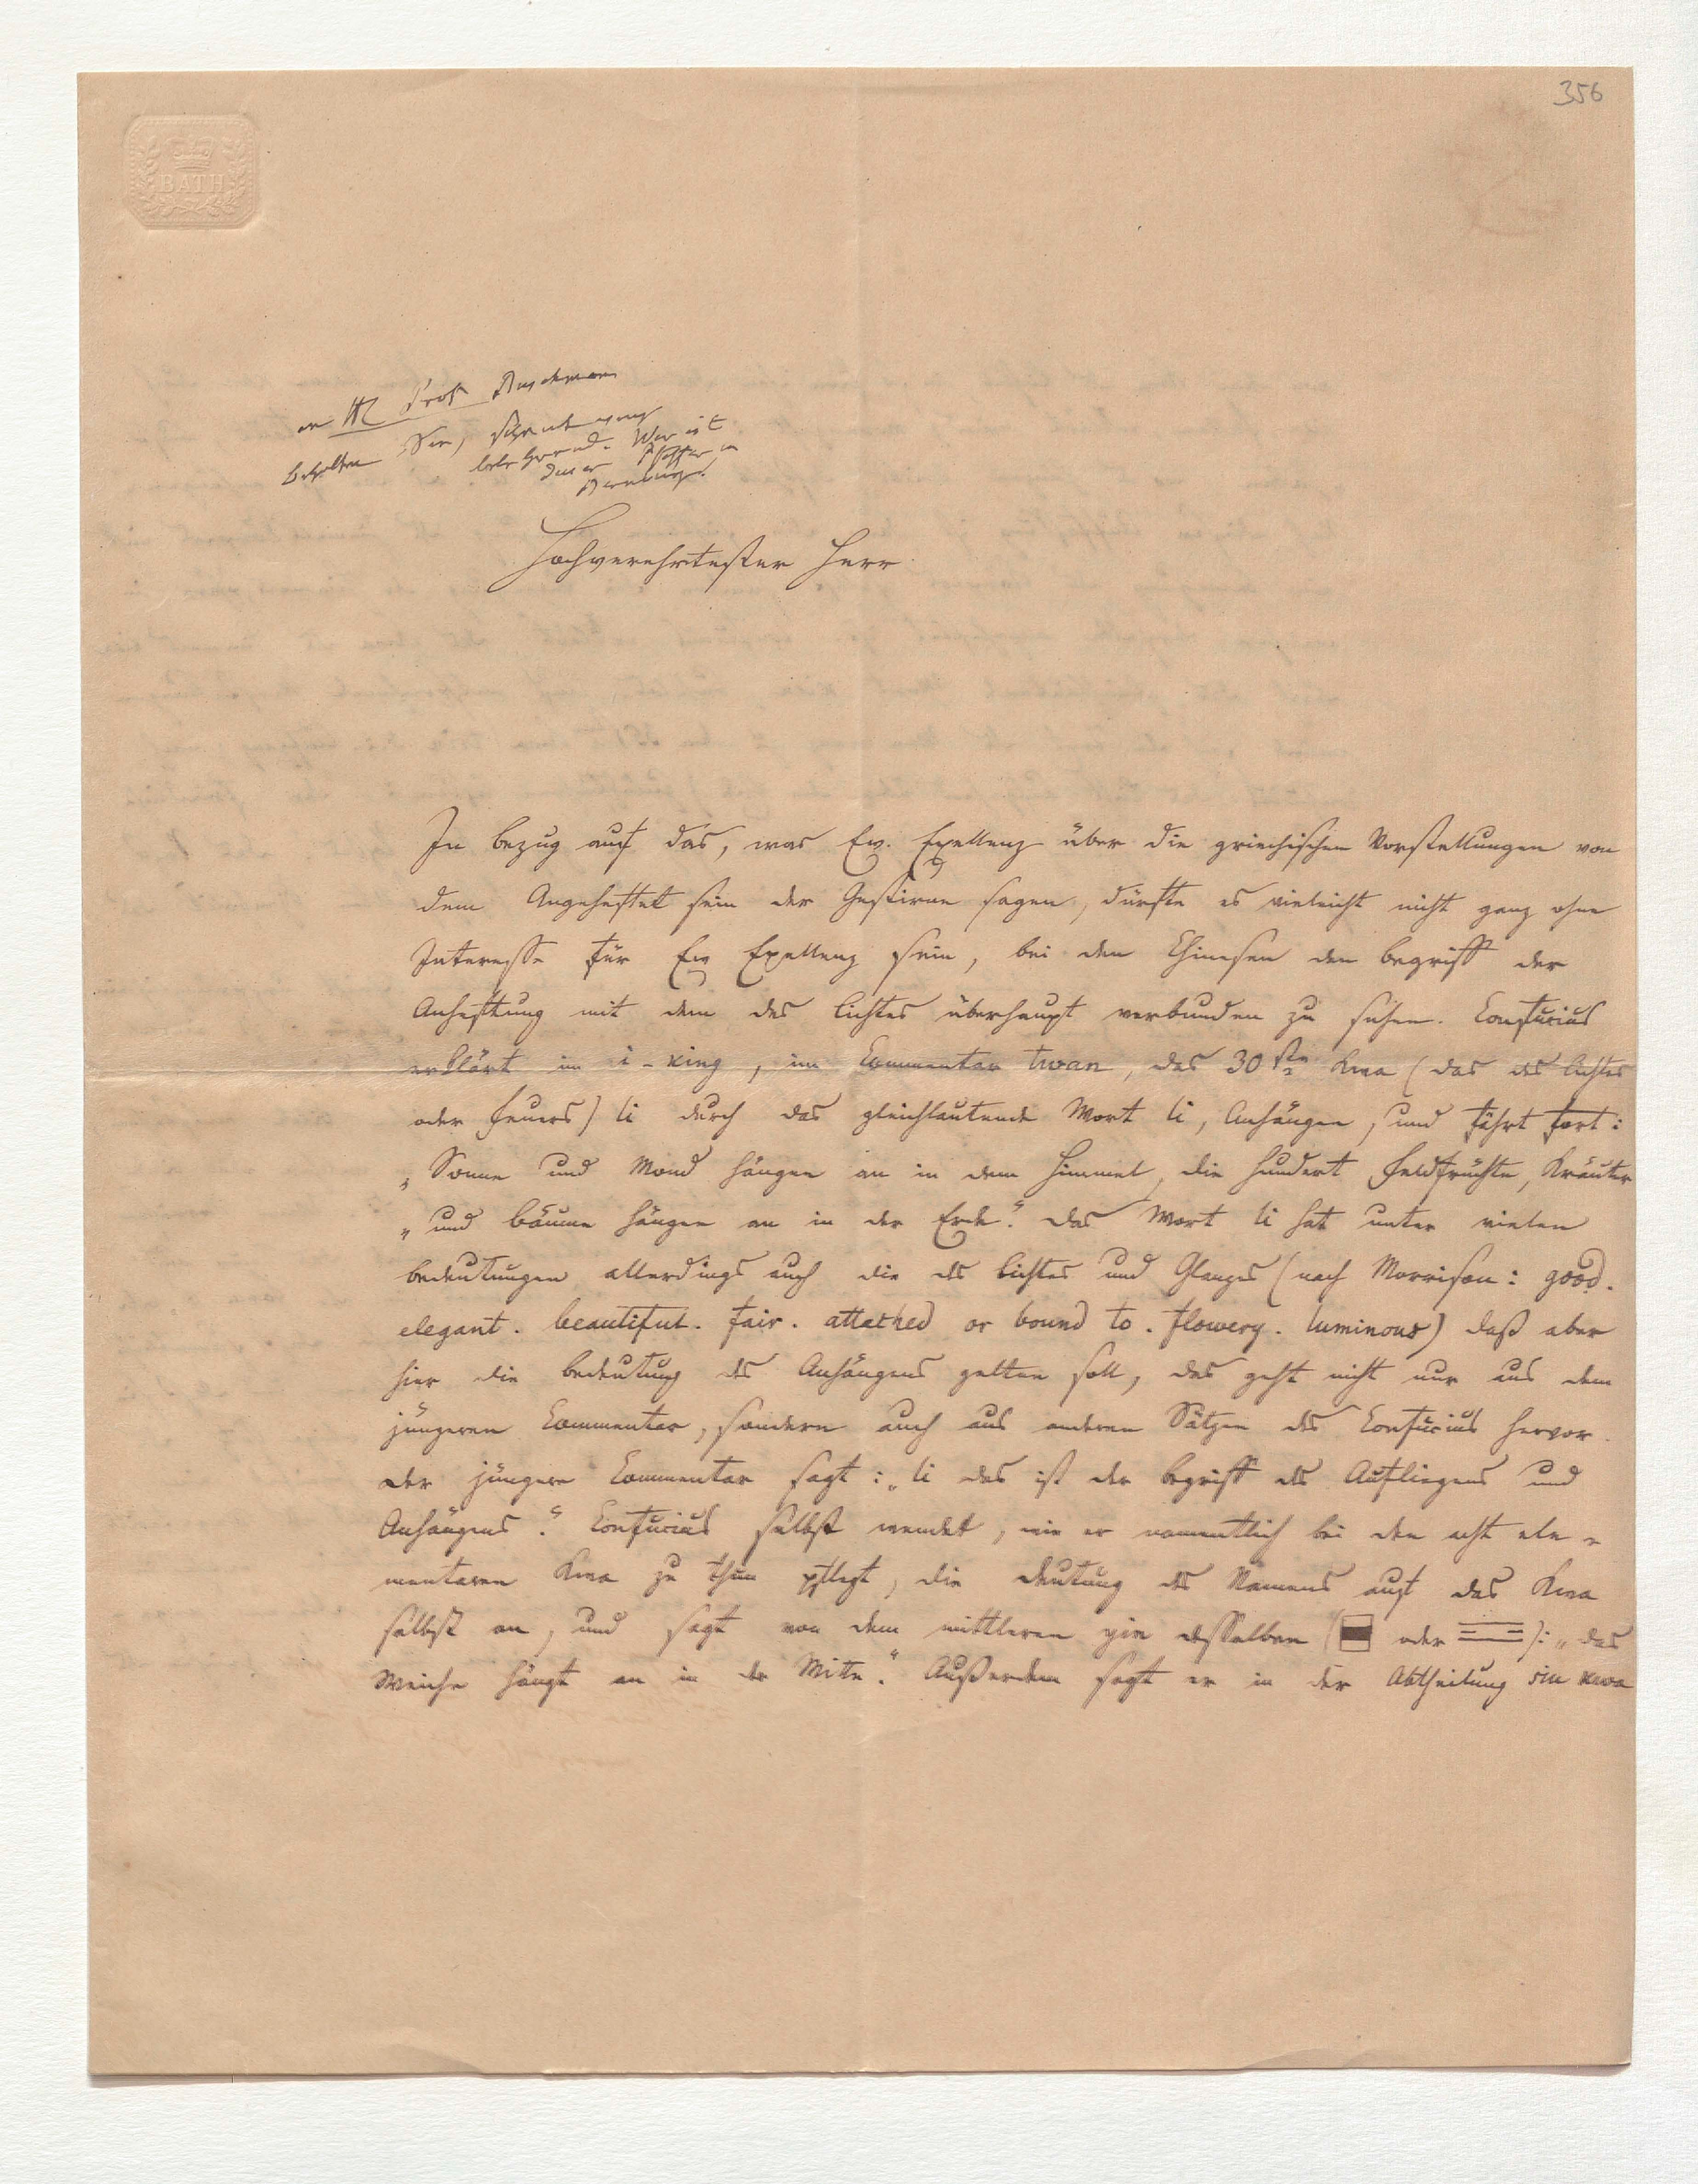 356
BATH
an H Prof Buschmann
behalten Sie,
belehrend. Wer ist
dieser Pfaffer in
Bernburg?
Hochverehrtester Herr
In Bezug auf das, was Ew. Exellenz über die griechischen Vorstellungen von
dem Angeheftet sein der Gestirne sagen, dürfte es vieleicht nicht ganz ohne
Interesse für Ew Exellenz sein, bei den Chinesen den Begriff der
Anheftung mit dem des Lichtes überhaupt verbunden zu sehen. Confucius
erklärt im i-king, im Commentar twan, das 30ste Kwa (das des Lichtes
oder Feuers) li durch das gleichlautende Wort li, Anhängen, und fährt fort:
„Sonne und Mond hängen an in dem Himmel, die hundert Feldfrüchte, Kräuter
„und Bäume hängen an in der Erde.“ Das Wort li hat unter vielen
Bedeutungen allerdings auch die des Lichtes und Glanzes (nach Morrison: good.
elegant. beautiful. fair. attatked or bound to. flowery. luminous) daß aber
hier die Bedeutung des Anhängens gelten soll, das geht nicht nur aus dem
jüngeren Commentar, sondern auch aus anderen Sätzen des Confucius hervor.
Der jüngere Commentar sagt: „li das ist der Begriff des Aufliegens und
Anhängens.“ Confucius selbst wendet, wie er namentlich bei den acht ele-
mentaren Kwa zu thun pflegt, die Deutung des Namens auf das Kwa
selbst an, und sagt von dem mittleren yin desselben ( oder ): „das
Weiche hängt an in der Mitte.“ Außerdem sagt er in der Abtheilung kwa